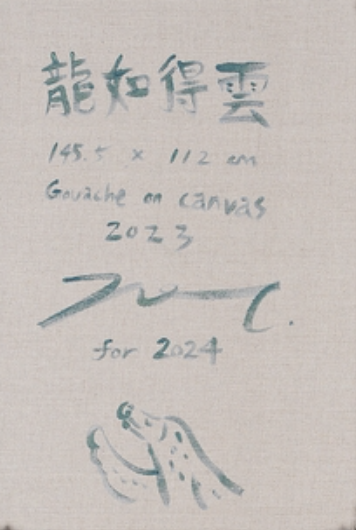 龍如得雲
145.5 x 112 cm
Gouache on canvas
2023
for 2024